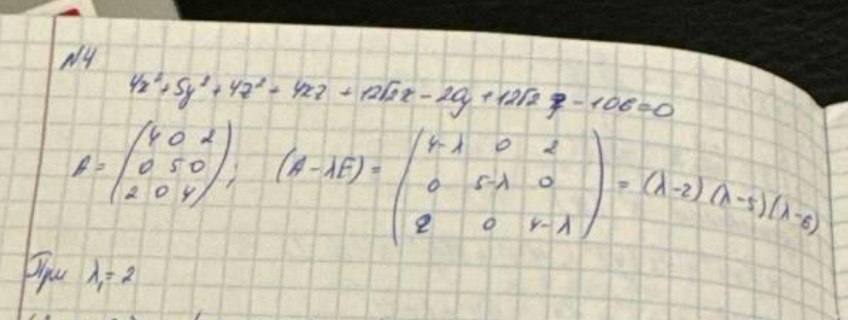 №4
4x² + 5y² + 4z² + 4xz + 12√2x - 20y + 12√2 z - 106 = 0
A = (4 0 2 / 0 5 0 / 2 0 4); (A - λE) = (4-λ 0 2 / 0 5-λ 0 / 2 0 4-λ) = (λ-2)(λ-5)(λ-6)
При λ₁ = 2